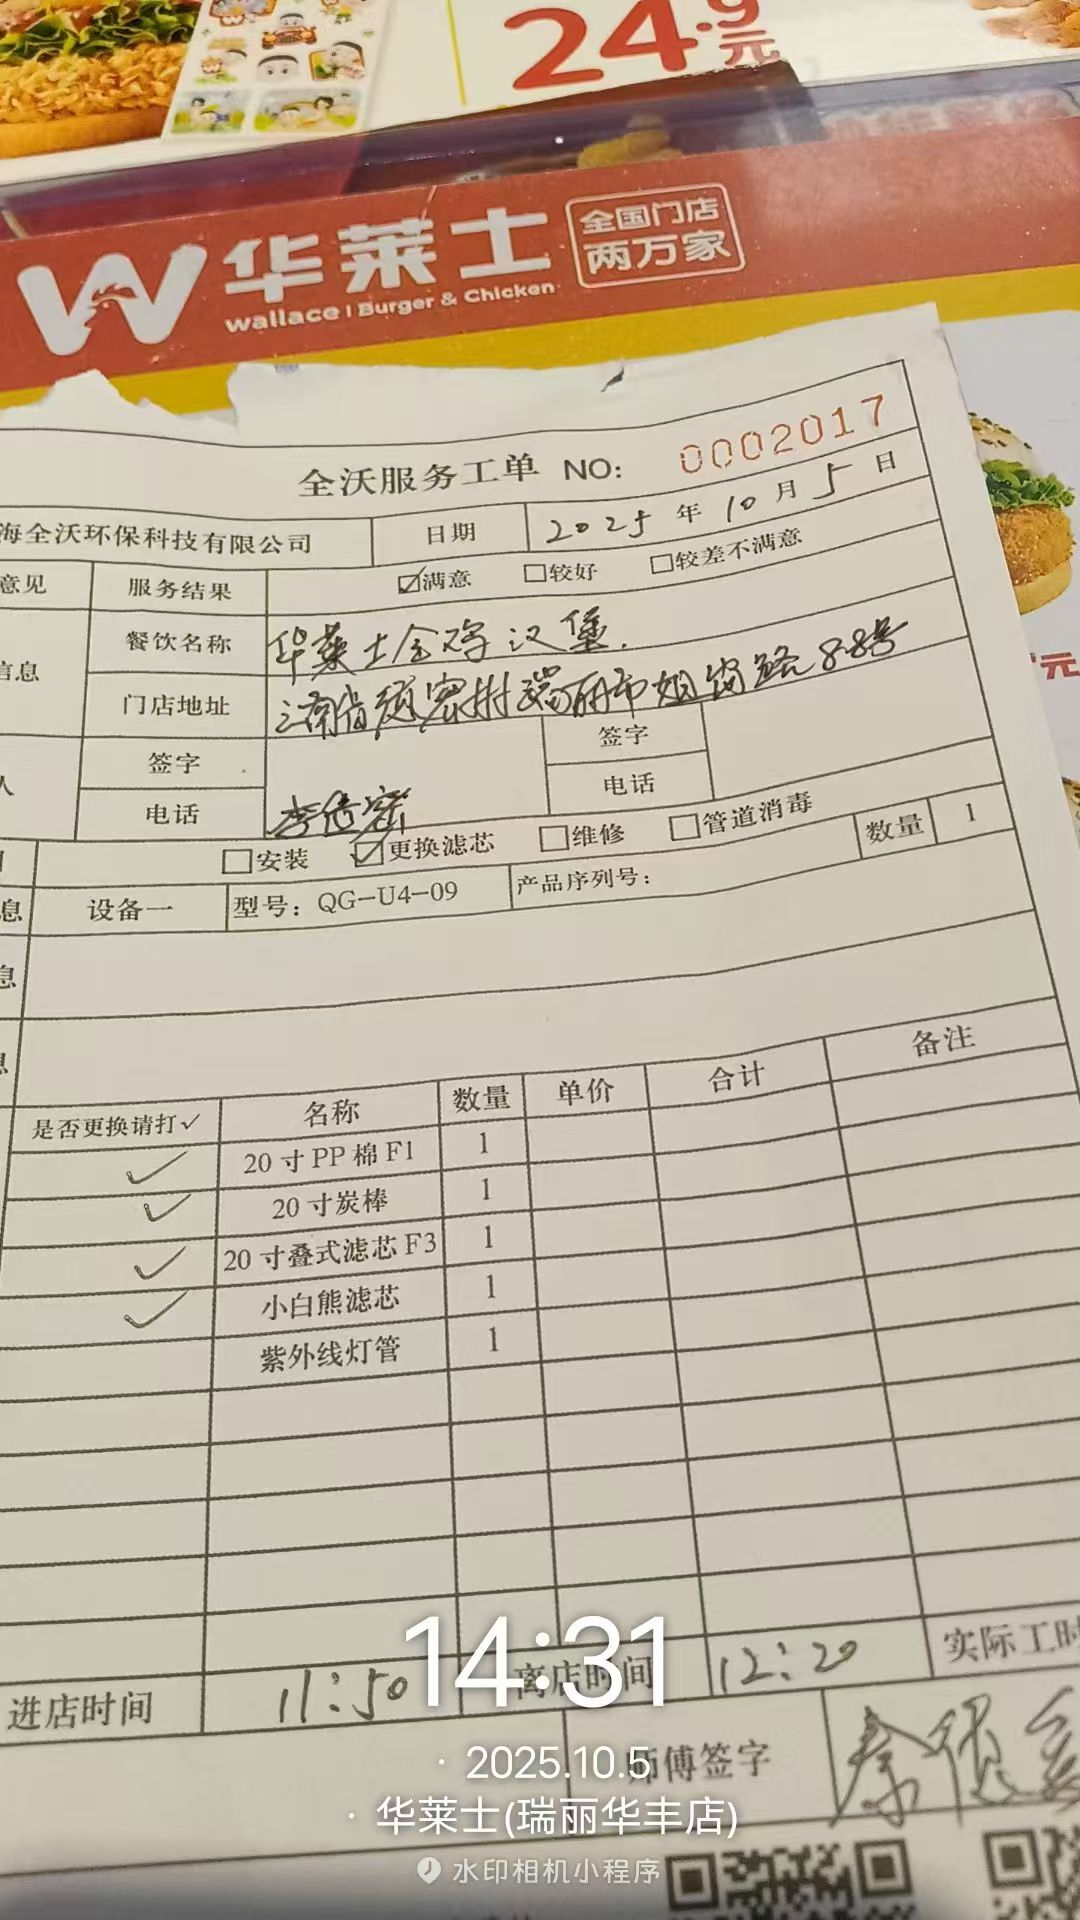 24.9元
W华莱士 全国门店
两万家
Wallace | Burger & Chicken
全沃服务工单 NO: 0002017
海全沃环保科技有限公司 日期 2025 年 10 月 5 日
意见 服务结果 ☑满意 □较好 □较差不满意
信息 餐饮名称 华莱士全鸡汉堡.
门店地址 瑞丽市 路 88号
人 签字 签字
电话 电话
□安装 ☑更换滤芯 □维修 □管道消毒
息 设备一 型号: QG-U4-09 产品序列号: 数量 1
息
息
是否更换请打✓ 名称 数量 单价 合计 备注
✓ 20寸PP棉F1 1
✓ 20寸炭棒 1
✓ 20寸叠式滤芯F3 1
✓ 小白熊滤芯 1
紫外线灯管 1
进店时间 11:50 离店时间 12:20 实际工时
14:31
师傅签字
· 2025.10.5
· 华莱士(瑞丽华丰店)
水印相机小程序
元